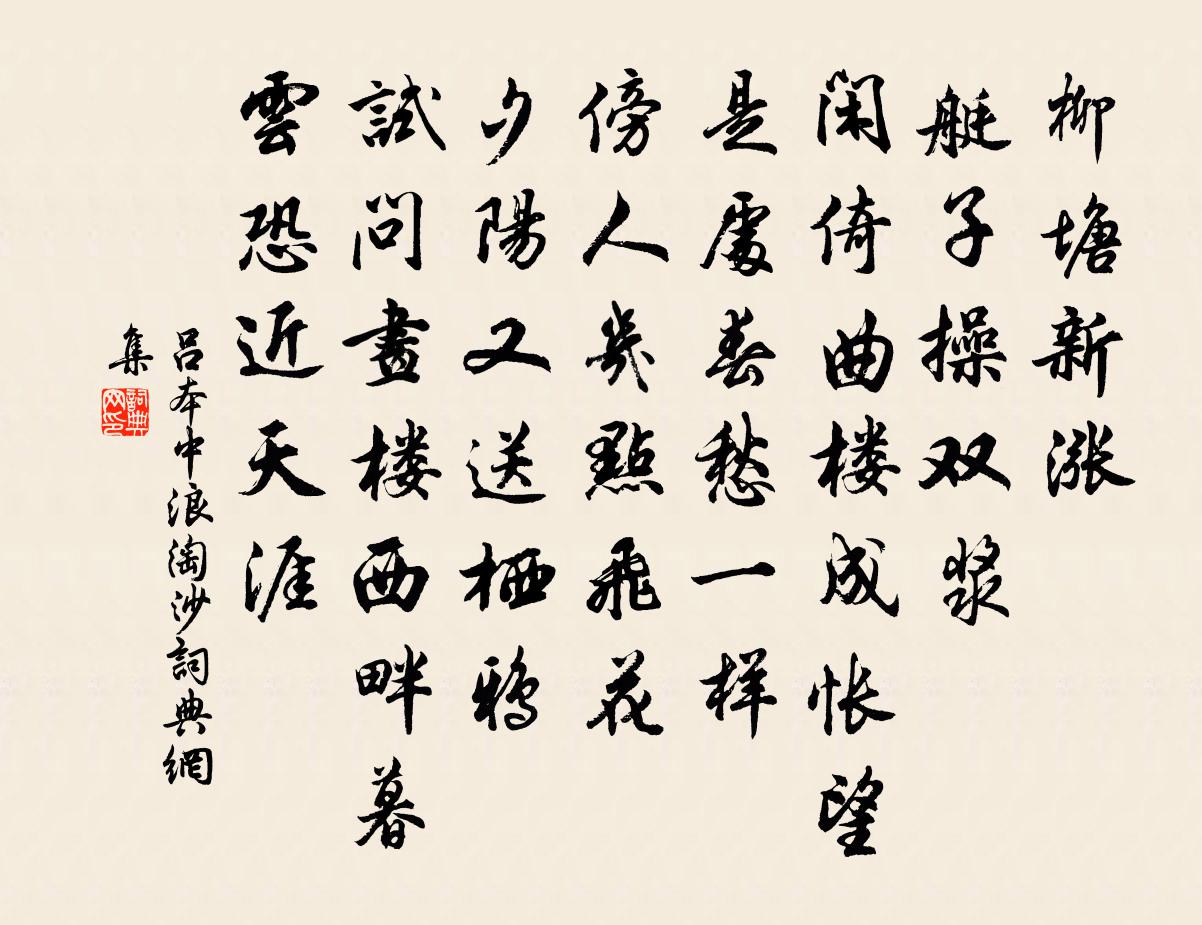 柳塘新涨
艇子操双桨
闲倚曲楼成怅望
是處春愁一样
傍人幾點飛花
夕陽又送栖鸦
試問畫楼西畔暮
雲恐近天涯
吕本中浪淘沙詞典網
集
詞典网印